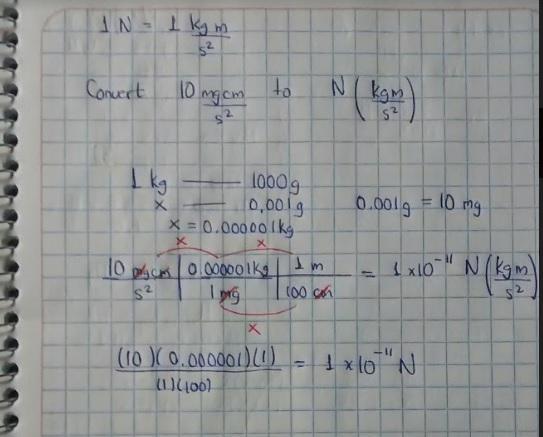 1 N = 1 kg m / s²
Convert 10 mgcm / s² to N ( kgm / s² )
1 kg —— 1000g
x —— 0,001g 0.001g = 10 mg
x = 0.000001kg
x x
10 mgcm / s² | 0.000001kg / 1mg | 1 m / 100 cm = 1 x10⁻¹¹ N ( kgm / s² )
x
(10)(0.000001)(1) / (1)(100) = 1 x10⁻¹¹ N